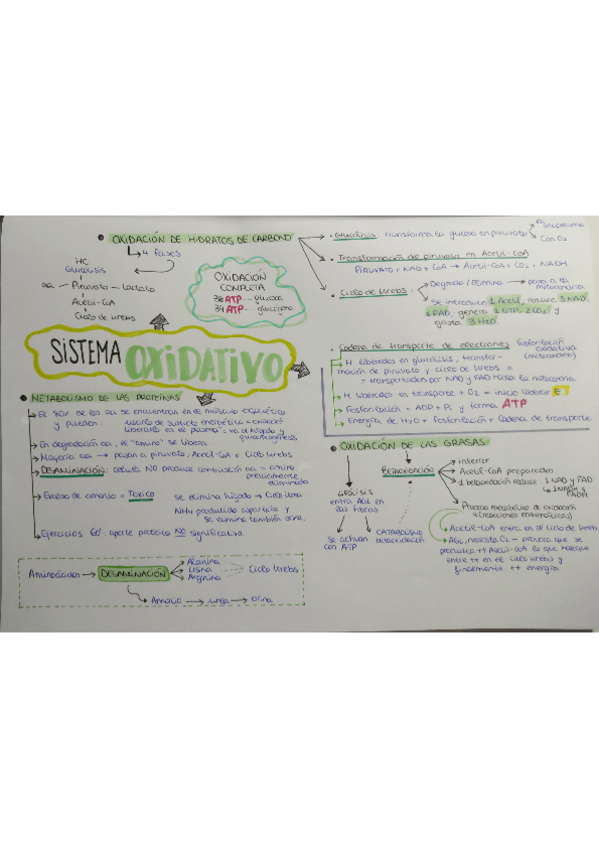 OXIDACIÓN DE HIDRATOS DE CARBONO
4 fases
HC
Glucólisis
aa → Piruvato → Lactato
Acetil-CoA
Ciclo de Krebs
OXIDACIÓN
COMPLETA
38 ATP - glucosa
39 ATP - glucógeno
SISTEMA OXIDATIVO
• Glucólisis: transforma la glucosa en piruvato
Con O2
• Transformación de piruvato en Acetil-CoA
Piruvato + NAD + CoA → Acetil-CoA + CO2 + NADH
• Ciclo de Krebs
pasa a la
mitocondria
Se introduce 1 Acetil, reduce 3 NAD,
1 FAD, genera 1 GTP, 2CO2 y
gasta 3 H2O
• Cadena de transporte de electrones
Fosforilación
oxidativa
(mitocondria)
H liberados en glucólisis, transfor-
mación de piruvato y ciclo de Krebs =
= transportados por NAD y FAD hacia la mitocondria
H liberados en transporte + O2 = inicio liberar E
Fosforilación - ADP + Pi y forma ATP
Energía de H2O + Fosforilación + Cadena de transporte
METABOLISMO DE LAS PROTEÍNAS
El 80% de los aa se encuentra en el músculo esquelético
y pueden:
gluconeogénesis
En degradación aa, el "amino" se libera
Mayoría aa → pasan a piruvato, Acetil-CoA o Ciclo Krebs
DESAMINACIÓN: célula NO produce combustión aa - amino
previamente
eliminado
Exceso de amonio = Tóxico
se elimina hígado → Ciclo Urea
NH4 producido
se elimina también orina.
Ejercicios 60': aporte proteico NO significativo.
Aminoácidos → DESAMINACIÓN
Alanina
Lisina
Arginina
Ciclo Krebs
Amonio → Urea → orina
OXIDACIÓN DE LAS GRASAS
LIPÓLISIS
entra AGL en
las fibras
Se activan
con ATP
Betaoxidación
CATABOLISMO
betaoxidación
interior
Acetil-CoA preparados
1 betaoxidación reduce 1 NAD y FAD
NADH y
FADH
Proceso metabólico de oxidación
4 (reacciones enzimáticas)
Acetil-CoA entra en el Ciclo de Krebs
AGL, necesita O2 - provoca que se
produzca ++ Acetil-CoA lo que
entre ++ en el Ciclo Krebs y
finalmente ++ energía